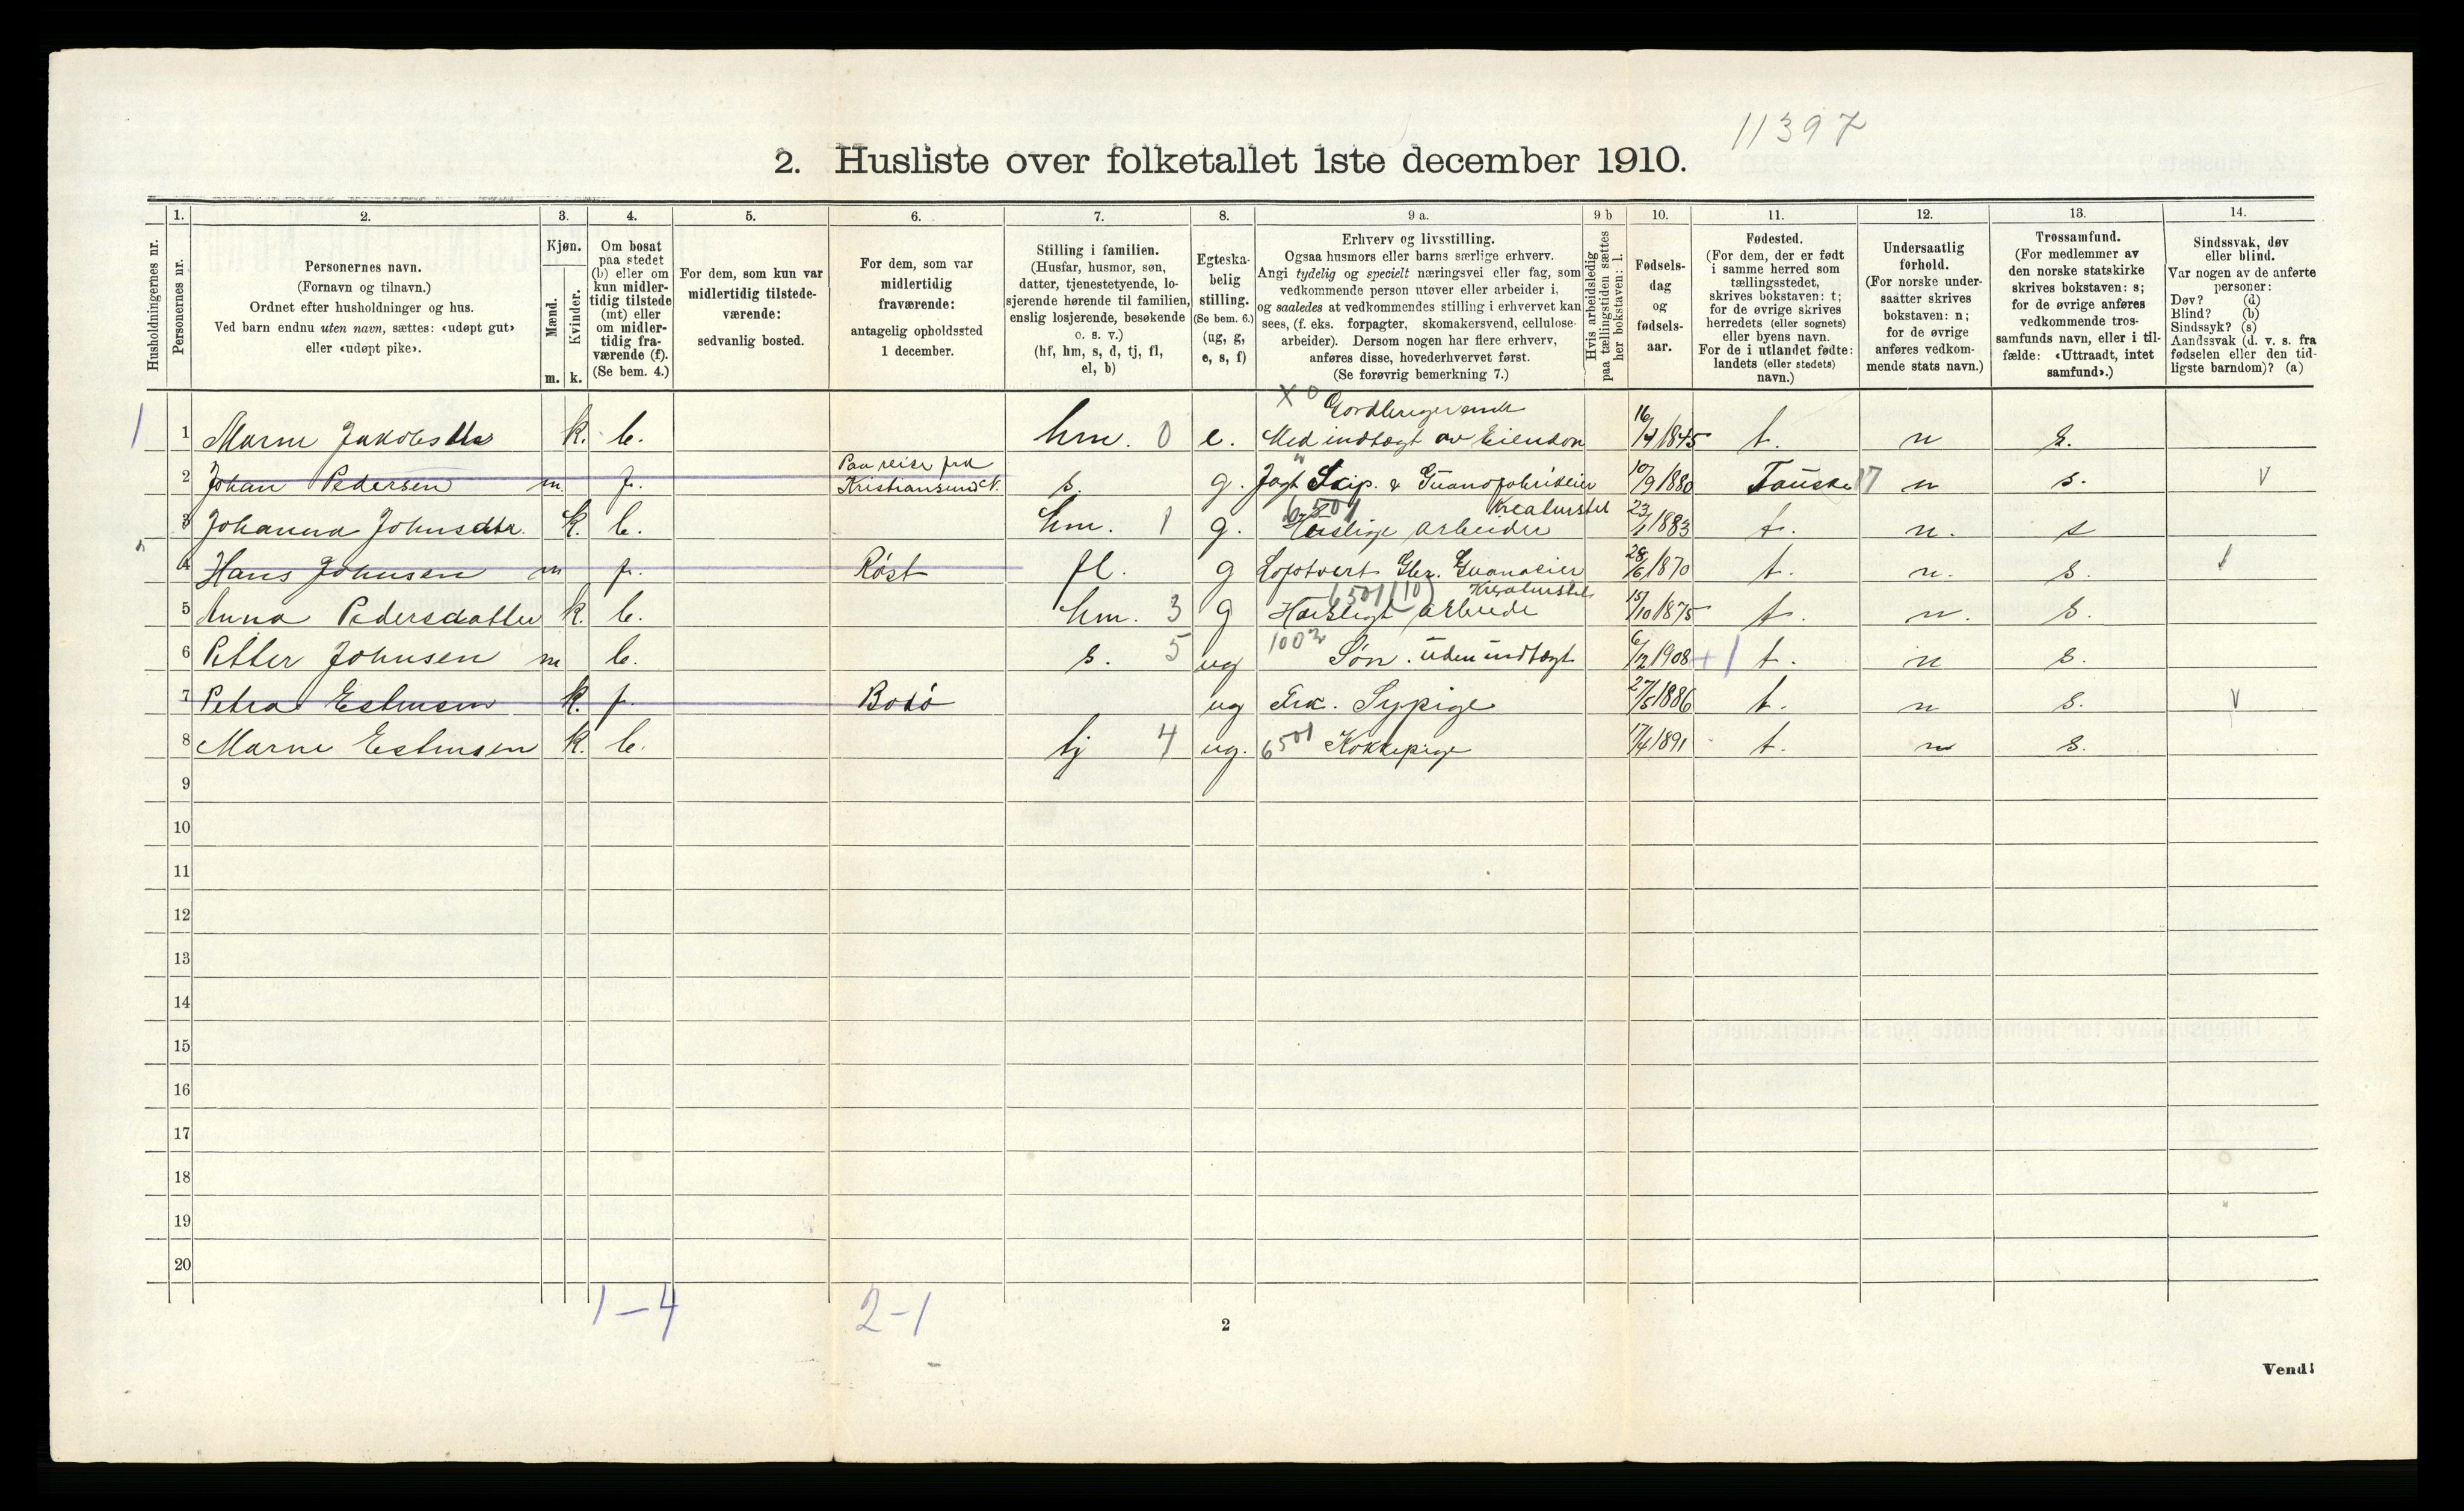 11397
2. Husliste over folketallet 1ste december 1910.
1. 2. 3. 4. 5. 6. 7. 8. 9 a. 9 b 10. 11. 12. 13. 14.
Husholdningernes nr.
Personernes nr.
Personernes navn.
(Fornavn og tilnavn.)
Ordnet efter husholdninger og hus.
Ved barn endnu uten navn, sættes: «udøpt gut»
eller «udøpt pike».
Kjøn.
Mænd.
Kvinder.
m. k.
Om bosat
paa stedet
(b) eller om
kun midler-
tidig tilstede
(mt) eller
om midler-
tidig fra-
værende (f).
(Se bem. 4.)
For dem, som kun var
midlertidig tilstede-
værende:
sedvanlig bosted.
For dem, som var
midlertidig
fraværende:
antagelig opholdssted
1 december.
Stilling i familien.
(Husfar, husmor, søn,
datter, tjenestetyende, lo-
sjerende hørende til familien,
enslig losjerende, besøkende
o. s. v.)
(hf, hm, s, d, tj, fl,
el, b)
Egteska-
belig
stilling.
(Se bem. 6.)
(ug, g,
e, s, f)
Erhverv og livsstilling.
Ogsaa husmors eller barns særlige erhverv.
Angi tydelig og specielt næringsvei eller fag, som
vedkommende person utøver eller arbeider i,
og saaledes at vedkommendes stilling i erhvervet kan
sees, (f. eks. forpagter, skomakersvend, cellulose-
arbeider). Dersom nogen har flere erhverv,
anføres disse, hovederhvervet først.
(Se forøvrig bemerkning 7.)
Hvis arbeidsledig
paa tællingstiden sættes
her bokstaven: l.
Fødsels-
dag
og
fødsels-
aar.
Fødested.
(For dem, der er født
i samme herred som
tællingsstedet,
skrives bokstaven: t;
for de øvrige skrives
herredets (eller sognets)
eller byens navn.
For de i utlandet fødte:
landets (eller stedets)
navn.)
Undersaatlig
forhold.
(For norske under-
saatter skrives
bokstaven: n;
for de øvrige
anføres vedkom-
mende stats navn.)
Trossamfund.
(For medlemmer av
den norske statskirke
skrives bokstaven: s;
for de øvrige anføres
vedkommende tros-
samfunds navn, eller i til-
fælde: «Uttraadt, intet
samfund».)
Sindssvak, døv
eller blind.
Var nogen av de anførte
personer:
Døv? (d)
Blind? (b)
Sindssyk? (s)
Aandssvak (d. v. s. fra
fødselen eller den tid-
ligste barndom)? (a)
X 0
1 1 k. b. hm. 0 e. Med indtægt av Eiendom 16/7 1845 t. n s.
Paa reise fra
2 Johan Pedersen m. f. Kristiansund N. s. g. Jagt Skip. & 10/9 1880 Fauske 17 n s. V
6501 Kreaturstel
3 Johanna Johnsdtr. k. b. hm. 1 g. Huslige arbeider 23/1 1883 t. n. s
4 Hans Johnsen m f. Røst fl. g 28/6 1870 t. n. s.
6501 (10) Kreaturstel
5 Anna Pedersdatter k. b. hm. 3 g Husligt arbeide 15/10 1875 t. n. s.
6 Petter Johnsen m b. s. 5 ug 1002 Søn. uden indtægt 6/12 1908 +1 t. n s.
7 Petra k. f. Bodø ug Frk. Sypige 27/5 1886 t. n s. V
8 k. b. tj 4 ug. 6501 Kokkepige 17/4 1891 t. n s.
9
10
11
12
13
14
15
16
17
18
19
20
1-4 2-1
2
Vend!